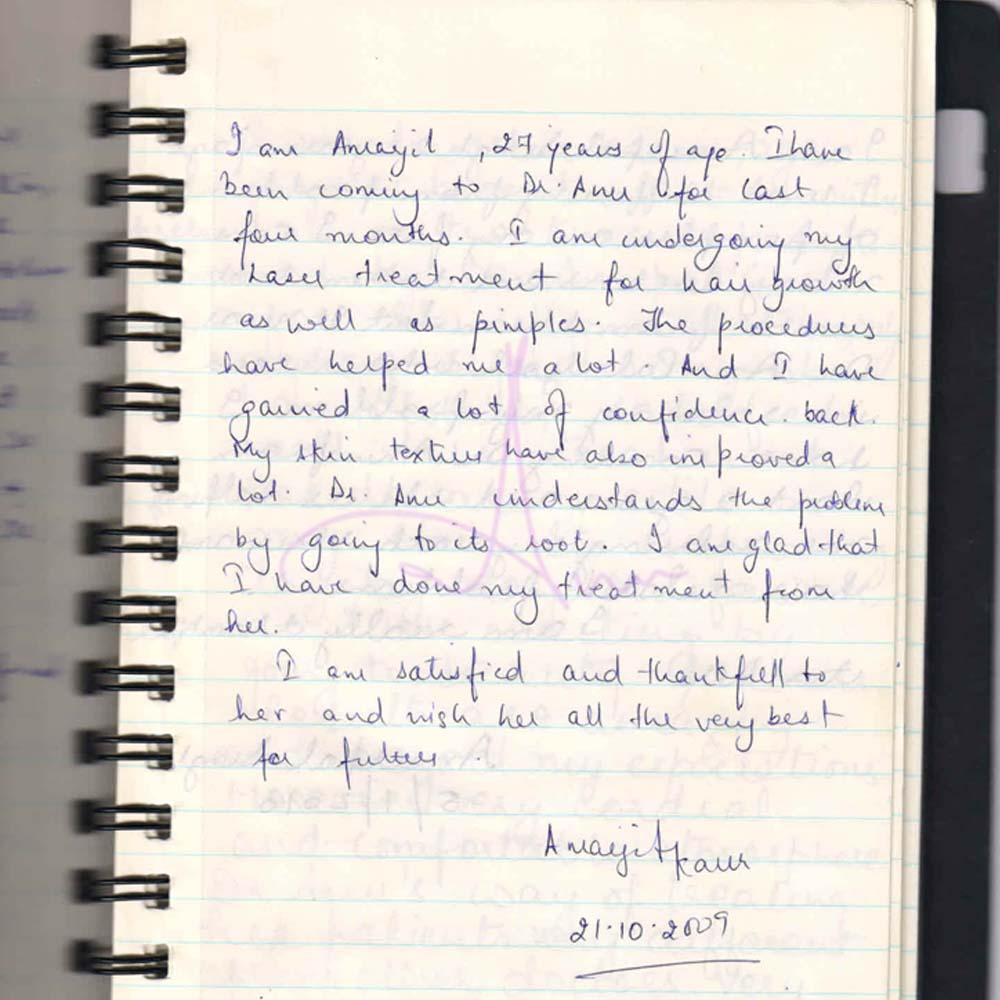 I am Amarjit , 27 years of age. I have
been coming to Dr. Anu for last
four months. I am undergoing my
Laser treatment for hair growth
as well as pimples. The procedures
have helped me a lot. And I have
gained a lot of confidence back.
My skin textures have also improved a
lot. Dr. Anu understands the problem
by going to its root. I am glad that
I have done my treatment from
her.
I am satisfied and thankfull to
her and wish her all the very best
for future.
Amarjit Kaur
21.10.2009